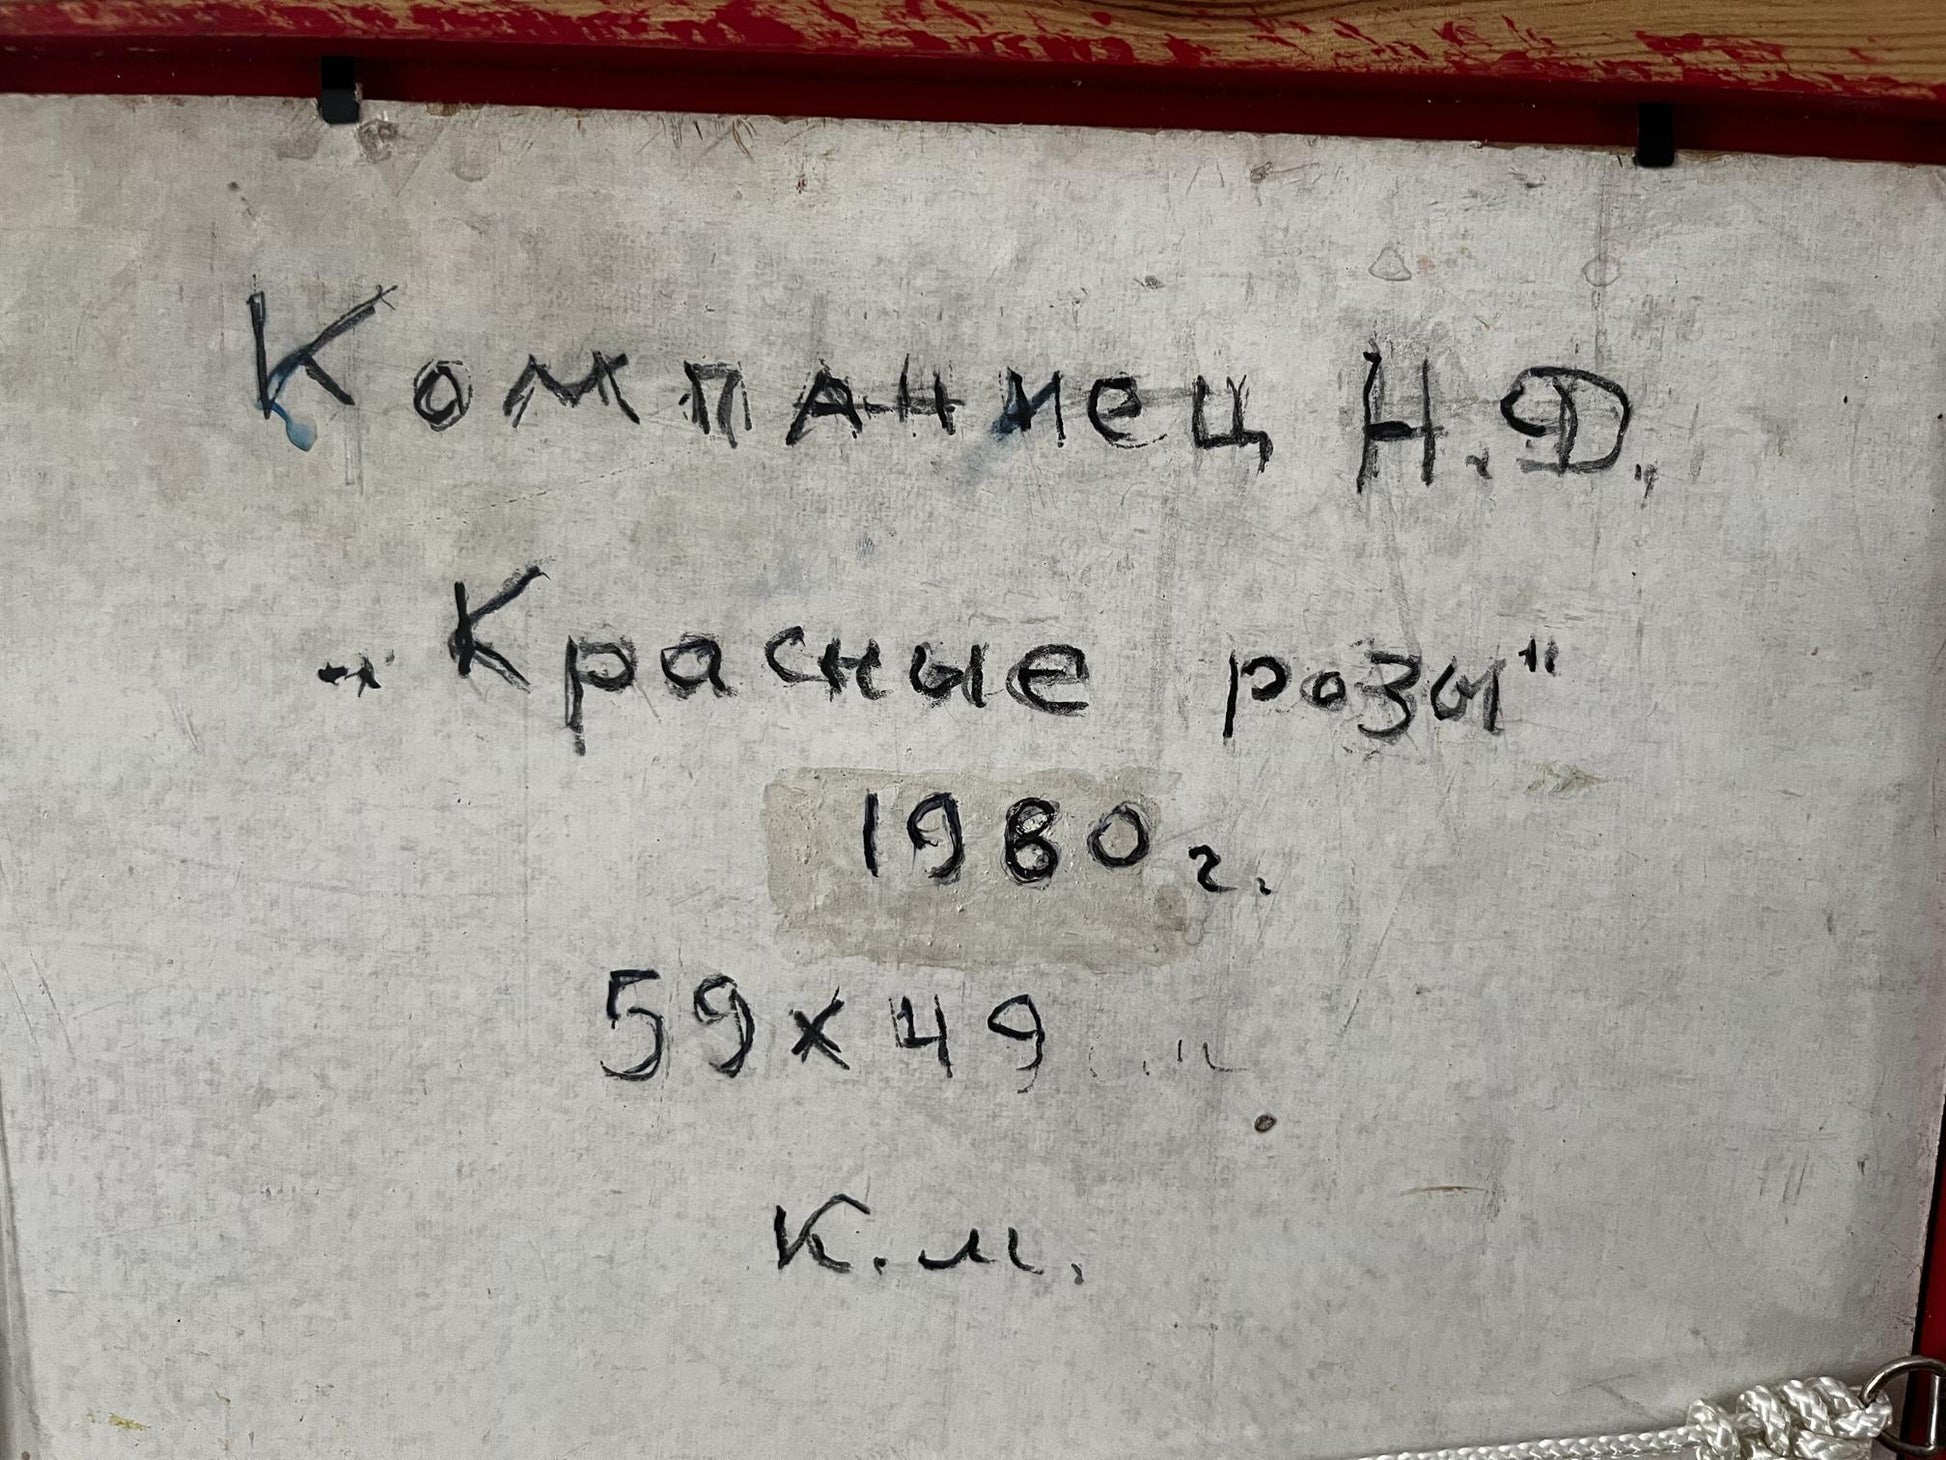 Компаниец Н.Д.,
"Красные розы"
1980 г.
59 х 49
к.м.